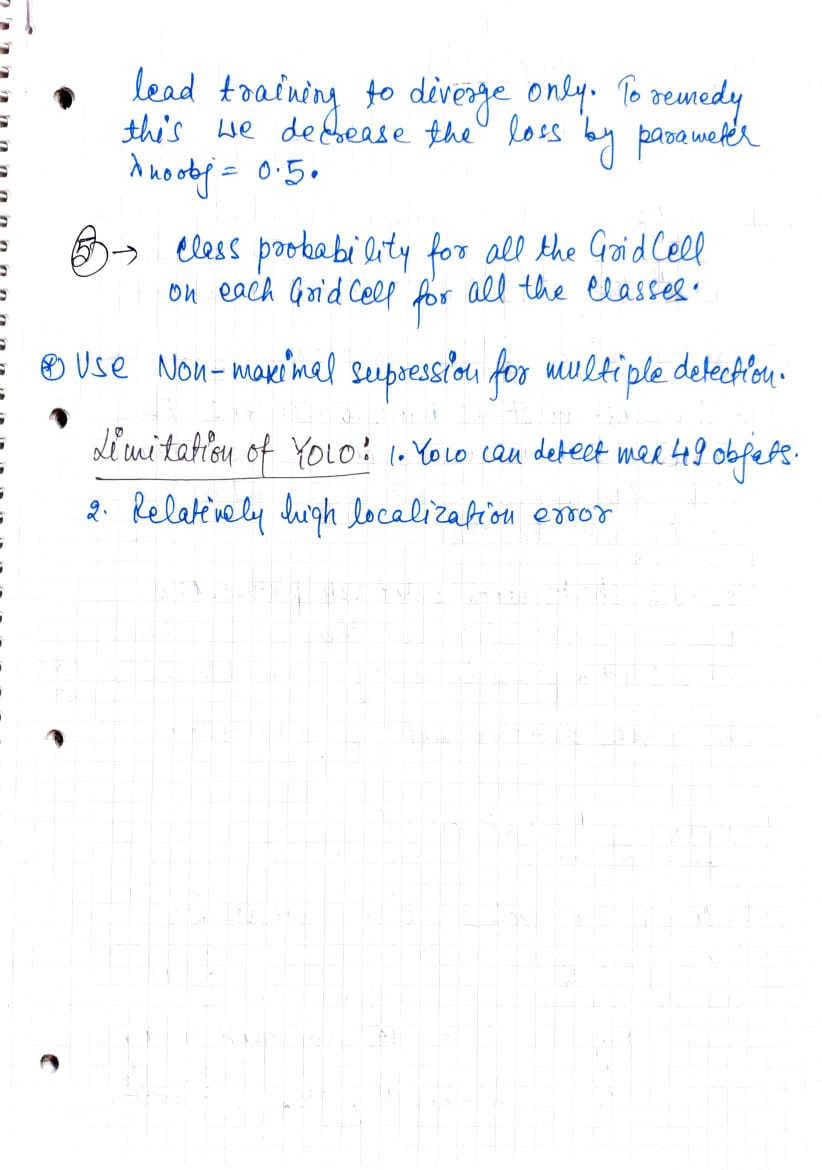 lead training to diverge only. To remedy
this we decrease the loss by parameter
λnoobj = 0.5.
5 → class probability for all the Grid Cell
on each Grid Cell for all the classes.
⊛ Use Non-maximal supression for multiple detection.
Limitation of YOLO: 1. YOLO can detect max 49 objets.
2. Relatively high localization error